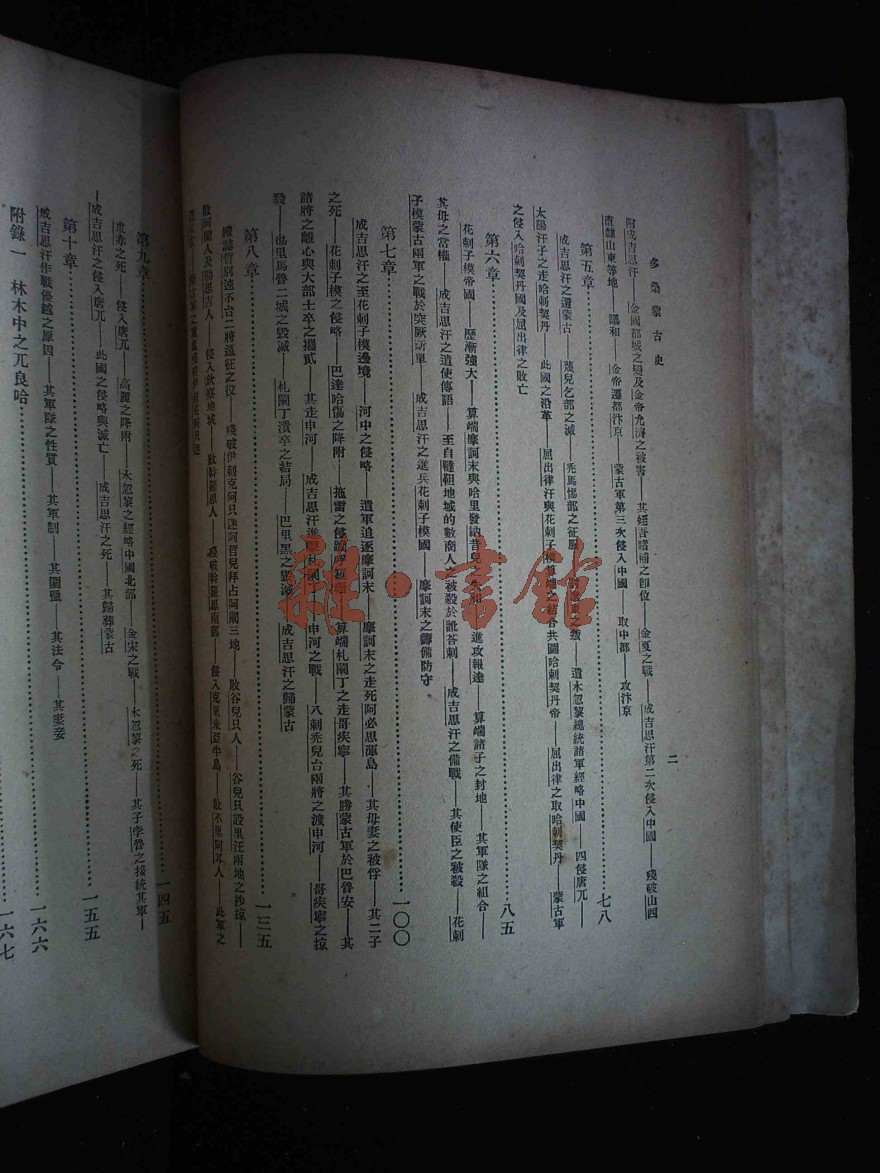 多桑蒙古史
二
附成吉思汗——金國都城之變及金帝允濟之被害——其姪吾睹補之卽位——金夏之戰——成吉思汗第二次侵入中國——殘破山西
直隸山東等地——議和——金帝遷都汴京——蒙古軍第三次侵入中國——取中都——攻汴京
第五章 七八
成吉思汗之還蒙古——蔑兒乞部之滅——禿馬惕部之征服——之叛——遣木忽黎總統諸軍經略中國——四侵唐兀——
太陽汗子之走哈剌契丹——此國之沿革——屈出律汗與花剌子模算端之結合共圖哈剌契丹帝——屈出律之取哈剌契丹——蒙古軍
之侵入哈剌契丹國及屈出律之敗亡
第六章 八五
花剌子模帝國——歷漸強大——算端摩訶末與哈里發納昔兒——進攻報達——算端諸子之封地——其軍隊之組合——
其母之當權——成吉思汗之遣使傳語——至自韃靼地域的數商人之被殺於訛荅剌——成吉思汗之備戰——其使臣之被殺——花剌
子模蒙古兩軍之戰於突厥斯單——成吉思汗之進兵花剌子模國——摩訶末之籌備防守
第七章 一〇〇
成吉思汗之至花剌子模邊境——河中之侵略——遣軍追逐摩訶末——摩訶末之走死阿必思渾島——其母妻之被俘——其二子
之死——花剌子模之侵略——巴達哈傷之降附——拖雷之侵略呼羅珊——算端札闌丁之走哥疾寧——其勝蒙古軍於巴魯安——其
諸將之離心與大部士卒之攜貳——其走申河——成吉思汗進擊札闌丁——申河之戰——八剌禿兒台兩將之渡申河——哥疾寧之掠
殺——也里馬魯二城之毀滅——札闌丁潰卒之結局——巴里黑之毀滅——成吉思汗之歸蒙古
第八章 一三五
者別速不台二將遠征之役——殘破伊剌克阿只迷阿哲兒拜占阿闌三地——敗谷兒只人——谷兒只設里汪兩地之抄掠——
敗阿闌人及勒思吉人——侵入欽察地域——敗斡羅思人——殘破斡羅思南部——侵入克里米亞半島——敗不里阿耳人——此軍之
第九章 一四五
朮赤之死——侵入唐兀——高麗之降附——木忽黎之經略中國北部——金宋之戰——木忽黎之死——其子孛魯之接統其軍——
成吉思汗之侵入唐兀——此國之侵略與滅亡——成吉思汗之死——其歸葬蒙古
第十章 一五五
成吉思汗作戰優越之原因——其軍隊之性質——其軍制——其圍獵——其法令——其妻妾
一六六
附錄一 林木中之兀良哈 一六七
雜·書館